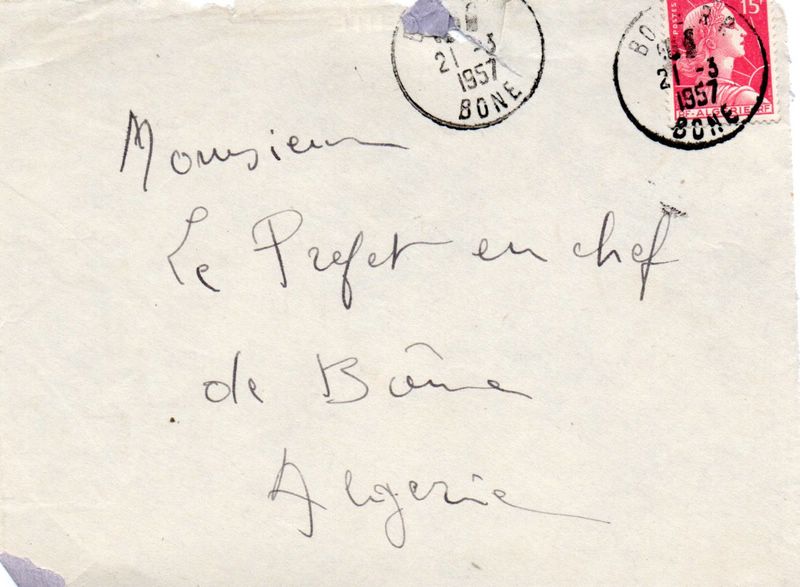 21 -3
1957
BONE
15F
POSTES
21 -3
1957
BONE
RF-ALGERIE-RF
Monsieur
Le Prefet en chef
de Bône
Algerie